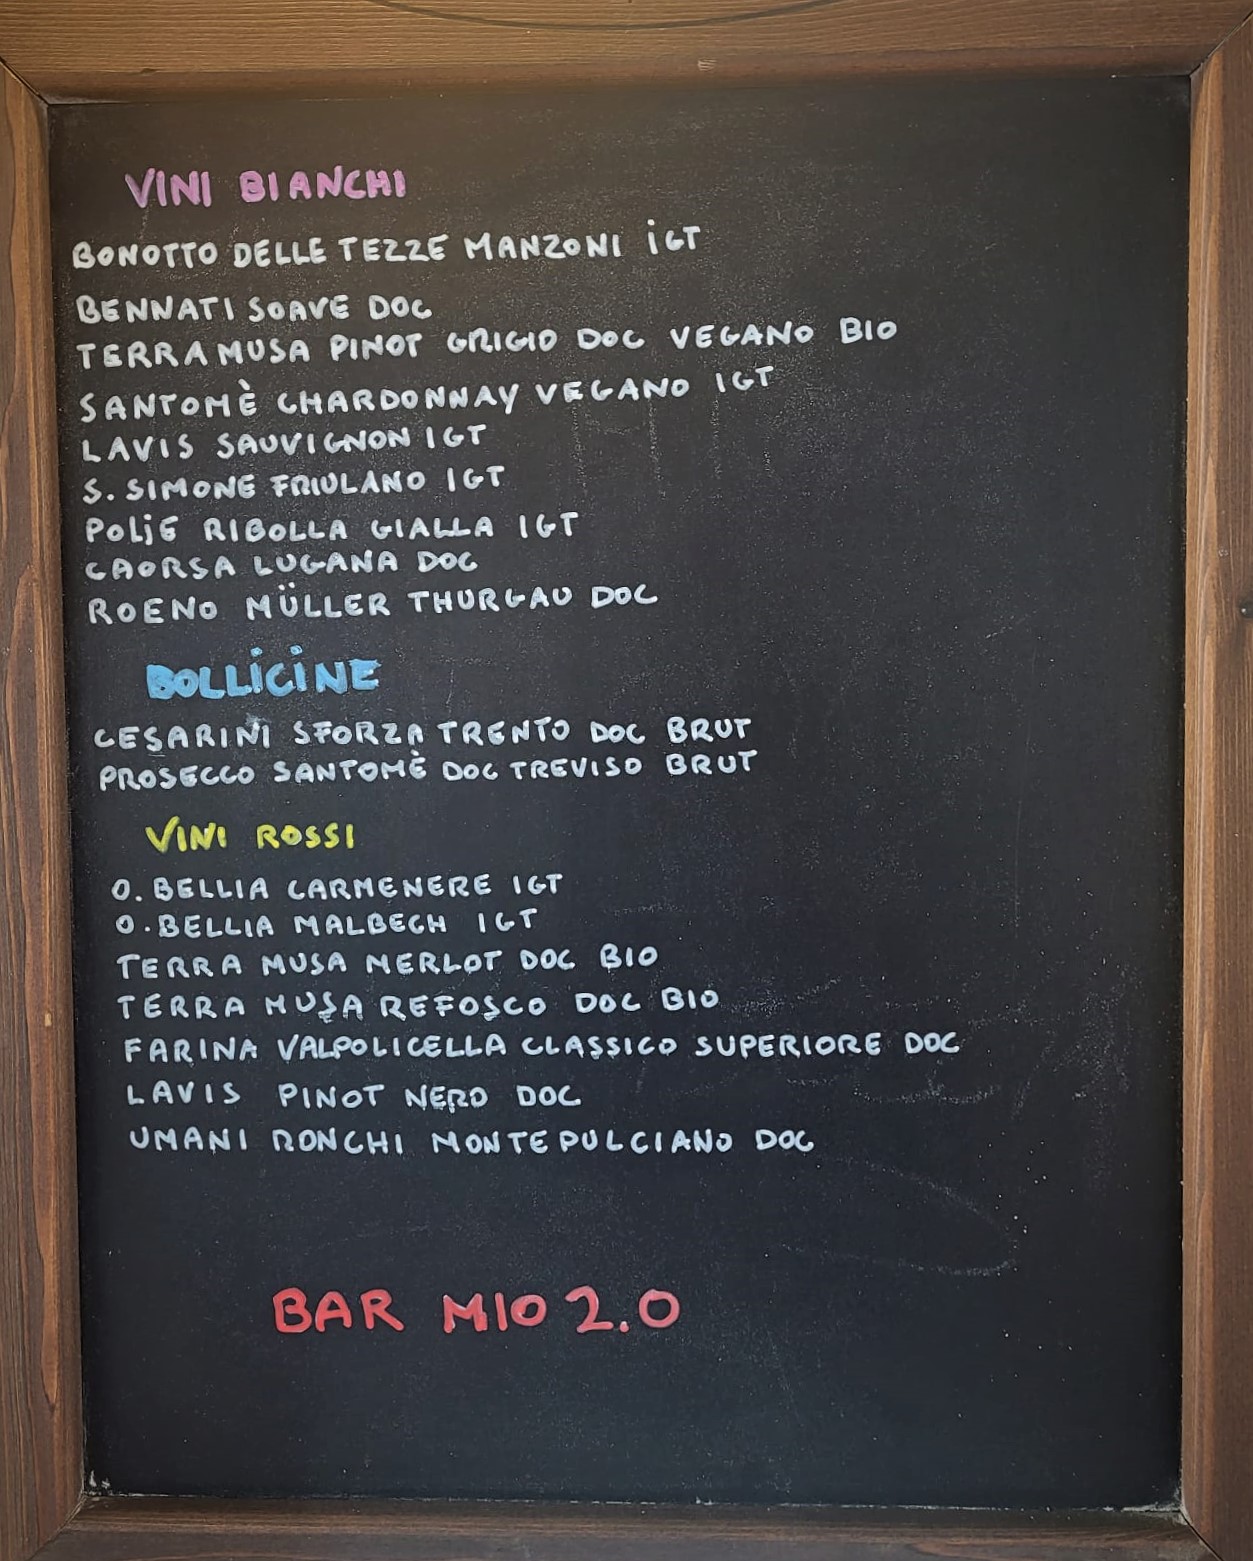 VINI BIANCHI
BONOTTO DELLE TEZZE MANZONI IGT
BENNATI SOAVE DOC
TERRAMUSA PINOT GRIGIO DOC VEGANO BIO
SANTOMÈ CHARDONNAY VEGANO IGT
LAVIS SAUVIGNON IGT
S. SIMONE FRIULANO IGT
POLJE RIBOLLA GIALLA IGT
CAORSA LUGANA DOC
ROENO MÜLLER THURGAU DOC
BOLLICINE
CESARINI SFORZA TRENTO DOC BRUT
PROSECCO SANTOMÈ DOC TREVISO BRUT
VINI ROSSI
O. BELLIA CARMENERE IGT
O. BELLIA MALBECH IGT
TERRA MUSA MERLOT DOC BIO
TERRA MUSA REFOSCO DOC BIO
FARINA VALPOLICELLA CLASSICO SUPERIORE DOC
LAVIS PINOT NERO DOC
UMANI RONCHI MONTEPULCIANO DOC
BAR MIO 2.0